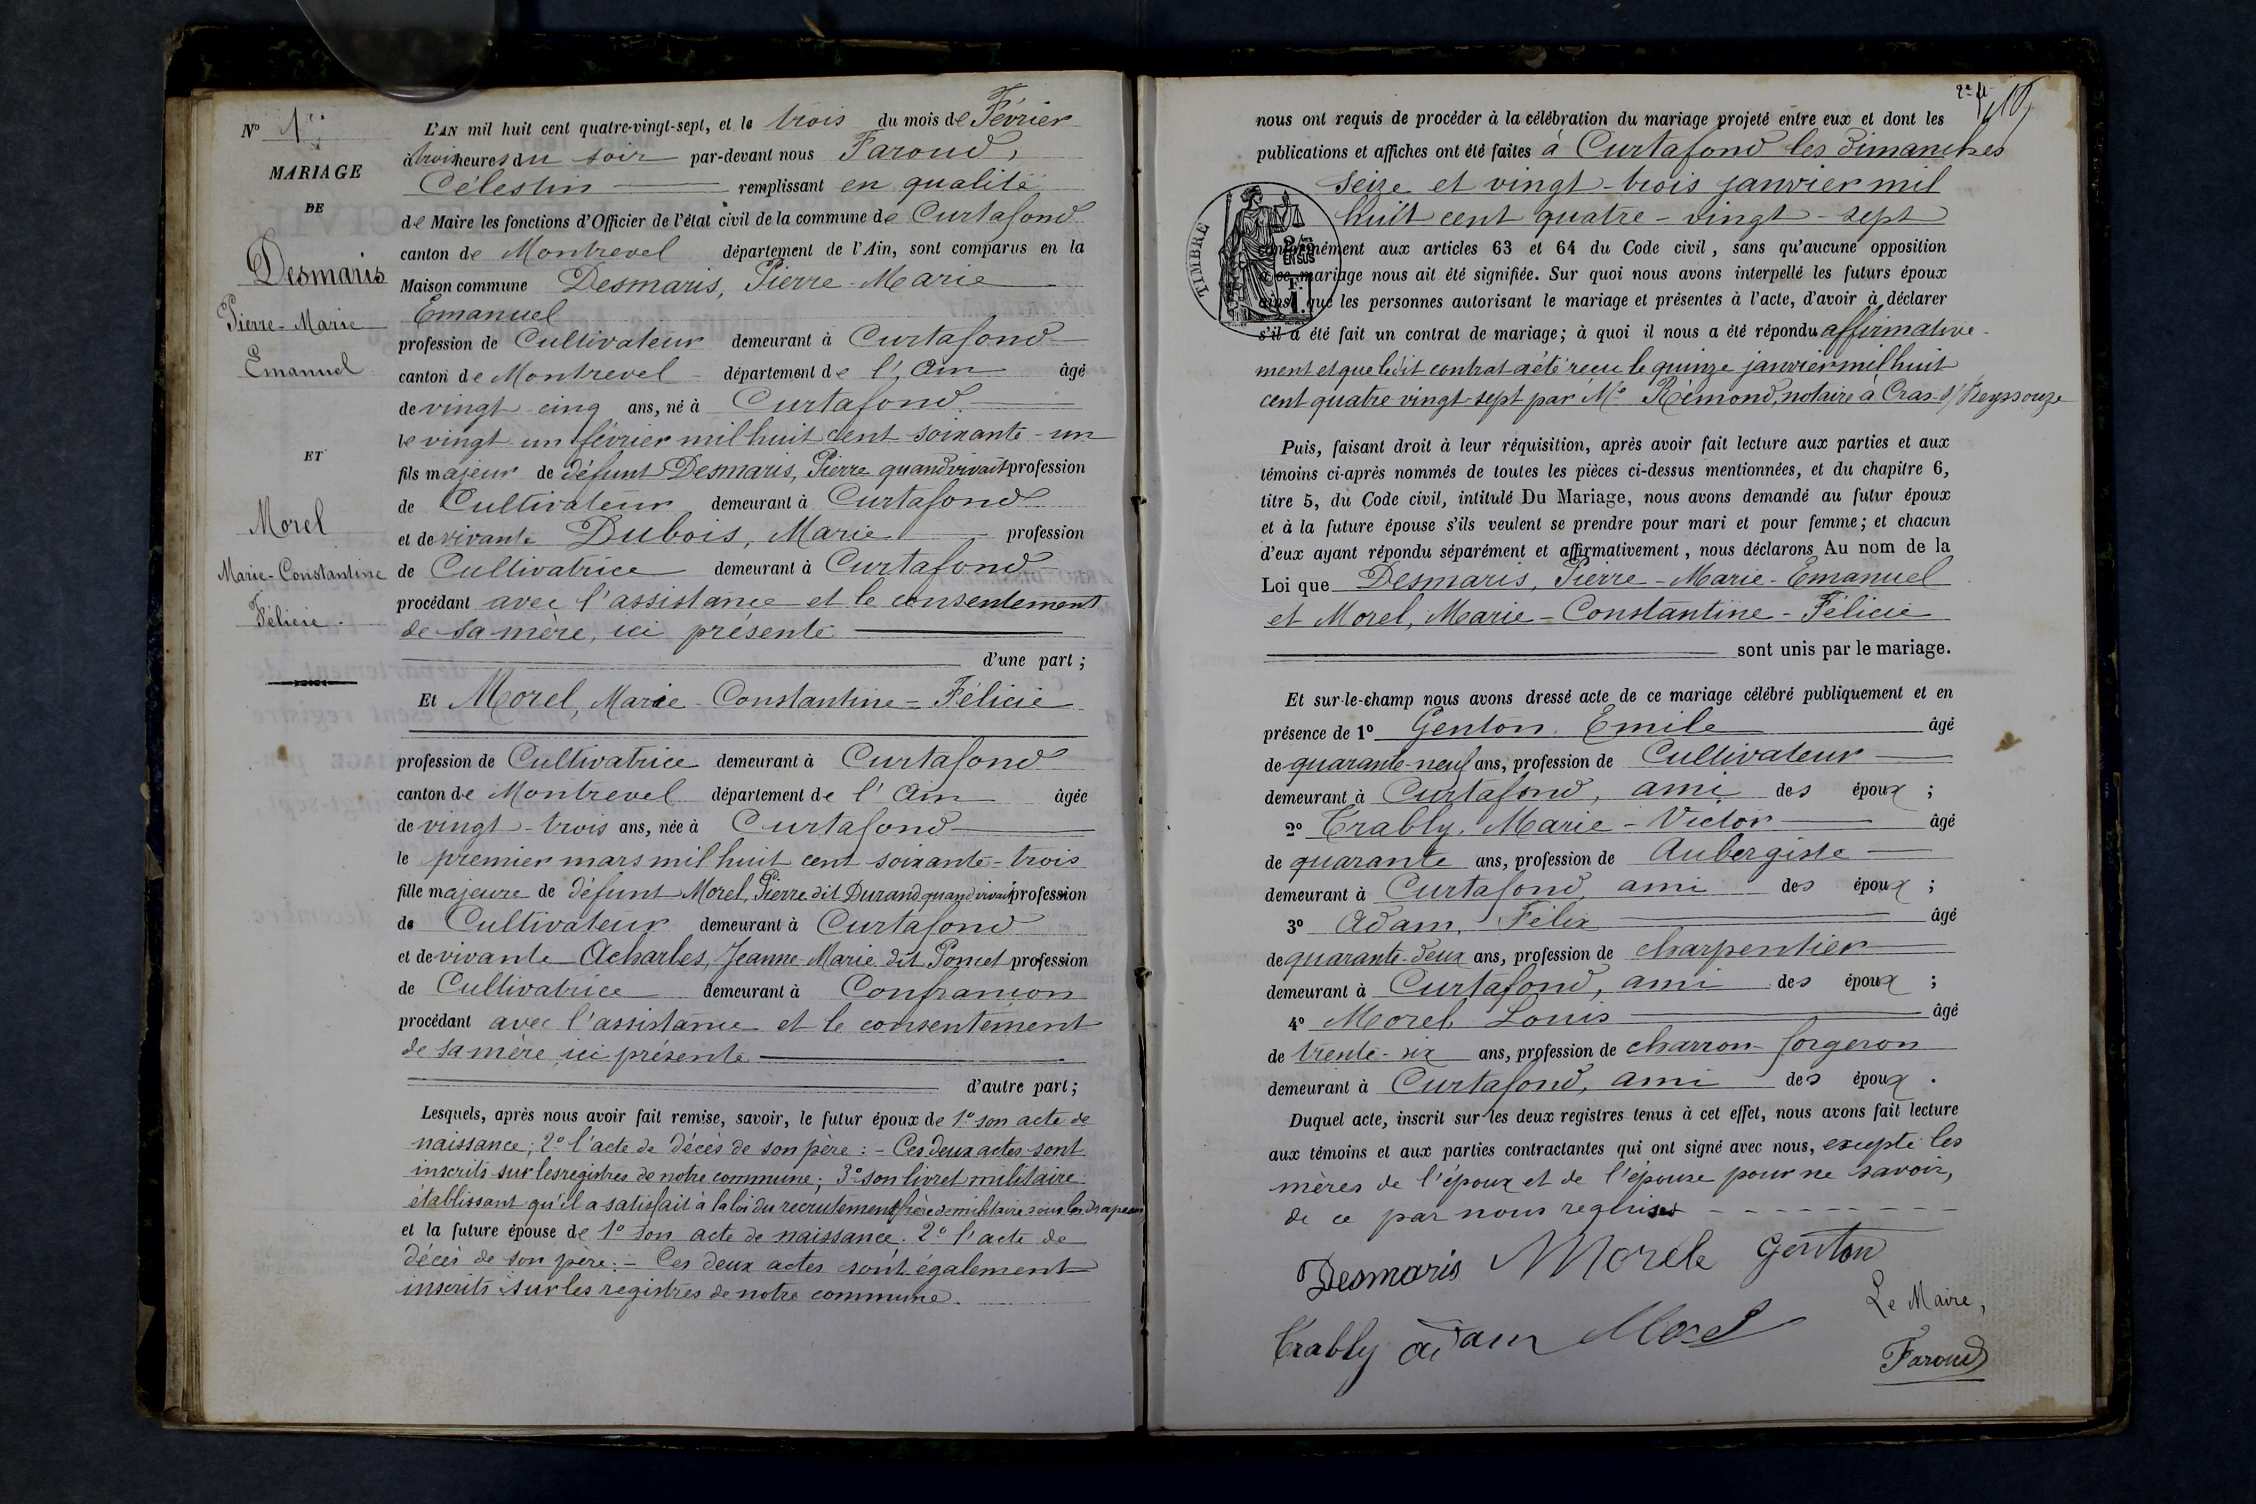 N° 1er
MARIAGE
DE
Desmaris
Pierre-Marie
Emanuel
ET
Morel
Marie-Constantine
Félicie.
L'AN mil huit cent quatre-vingt-sept, et le trois du mois de Février
à trois heures du soir par-devant nous Faroud,
Célestin remplissant en qualité
de Maire les fonctions d'Officier de l'état civil de la commune de Curtafond
canton de Montrevel département de l'Ain, sont comparus en la
Maison commune Desmaris, Pierre-Marie
Emanuel
profession de Cultivateur demeurant à Curtafond
canton de Montrevel département de l'Ain âgé
de vingt-cinq ans, né à Curtafond
le vingt-un février mil huit cent soixante-un
fils majeur de défunt Desmaris, Pierre quand vivait profession
de Cultivateur demeurant à Curtafond
et de vivante Dubois, Marie profession
de Cultivatrice demeurant à Curtafond
procédant avec l'assistance et le consentement
de sa mère, ici présente
d'une part ;
Et Morel, Marie-Constantine=Félicie
profession de Cultivatrice demeurant à Curtafond
canton de Montrevel département de l'Ain âgée
de vingt-trois ans, née à Curtafond
le premier mars mil huit cent soixante-trois
fille majeure de défunt Morel, Pierre dit Durand quand vivait profession
de Cultivateur demeurant à Curtafond
et de vivante Acharles, Jeanne-Marie dit Poncet profession
de Cultivatrice demeurant à Confrançon
procédant avec l'assistance et le consentement
de sa mère ici présente
d'autre part ;
Lesquels, après nous avoir fait remise, savoir, le futur époux de 1° son acte de
naissance ; 2° l'acte de décès de son père : - Ces deux actes sont
inscrits sur les registres de notre commune ; 3° son livret militaire
établissant qu'il a satisfait à la loi du recrutement frère de militaire sous les drapeaux
et la future épouse de 1° son acte de naissance. 2° l'acte de
décès de son père : - Ces deux actes sont également
inscrits sur les registres de notre commune.
2e ft
nous ont requis de procéder à la célébration du mariage projeté entre eux et dont les
publications et affiches ont été faites à Curtafond les dimanches
seize et vingt-trois janvier mil
huit cent quatre-vingt-sept
TIMBRE
2/10es EN SUS
1 F.
conformément aux articles 63 et 64 du Code civil, sans qu'aucune opposition
à ce mariage nous ait été signifiée. Sur quoi nous avons interpellé les futurs époux
ainsi que les personnes autorisant le mariage et présentes à l'acte, d'avoir à déclarer
s'il a été fait un contrat de mariage ; à quoi il nous a été répondu affirmative-
ment et que ledit contrat a été recu le quinze janvier mil huit
cent quatre vingt-sept par Me Rémond, notaire à Cras s/ Reyssouze
Puis, faisant droit à leur réquisition, après avoir fait lecture aux parties et aux
témoins ci-après nommés de toutes les pièces ci-dessus mentionnées, et du chapitre 6,
titre 5, du Code civil, intitulé Du Mariage, nous avons demandé au futur époux
et à la future épouse s'ils veulent se prendre pour mari et pour femme ; et chacun
d'eux ayant répondu séparément et affirmativement, nous déclarons Au nom de la
Loi que Desmaris, Pierre-Marie-Emanuel
et Morel, Marie-Constantine-Félicie
sont unis par le mariage.
Et sur-le-champ nous avons dressé acte de ce mariage célébré publiquement et en
présence de 1° Genton Emile âgé
de quarante-neuf ans, profession de Cultivateur
demeurant à Curtafond, ami des époux ;
2° Trably, Marie-Victor âgé
de quarante ans, profession de Aubergiste
demeurant à Curtafond ami des époux ;
3° Adam, Félix âgé
de quarante-deux ans, profession de charpentier
demeurant à Curtafond, ami des époux ;
4° Morel, Louis âgé
de trente-six ans, profession de charron-forgeron
demeurant à Curtafond, ami des époux.
Duquel acte, inscrit sur les deux registres tenus à cet effet, nous avons fait lecture
aux témoins et aux parties contractantes qui ont signé avec nous, excepté les
mères de l'époux et de l'épouse pour ne savoir,
de ce par nous requises
Desmaris Morele Genton
Le Maire,
Trably adam Morel
Faroud